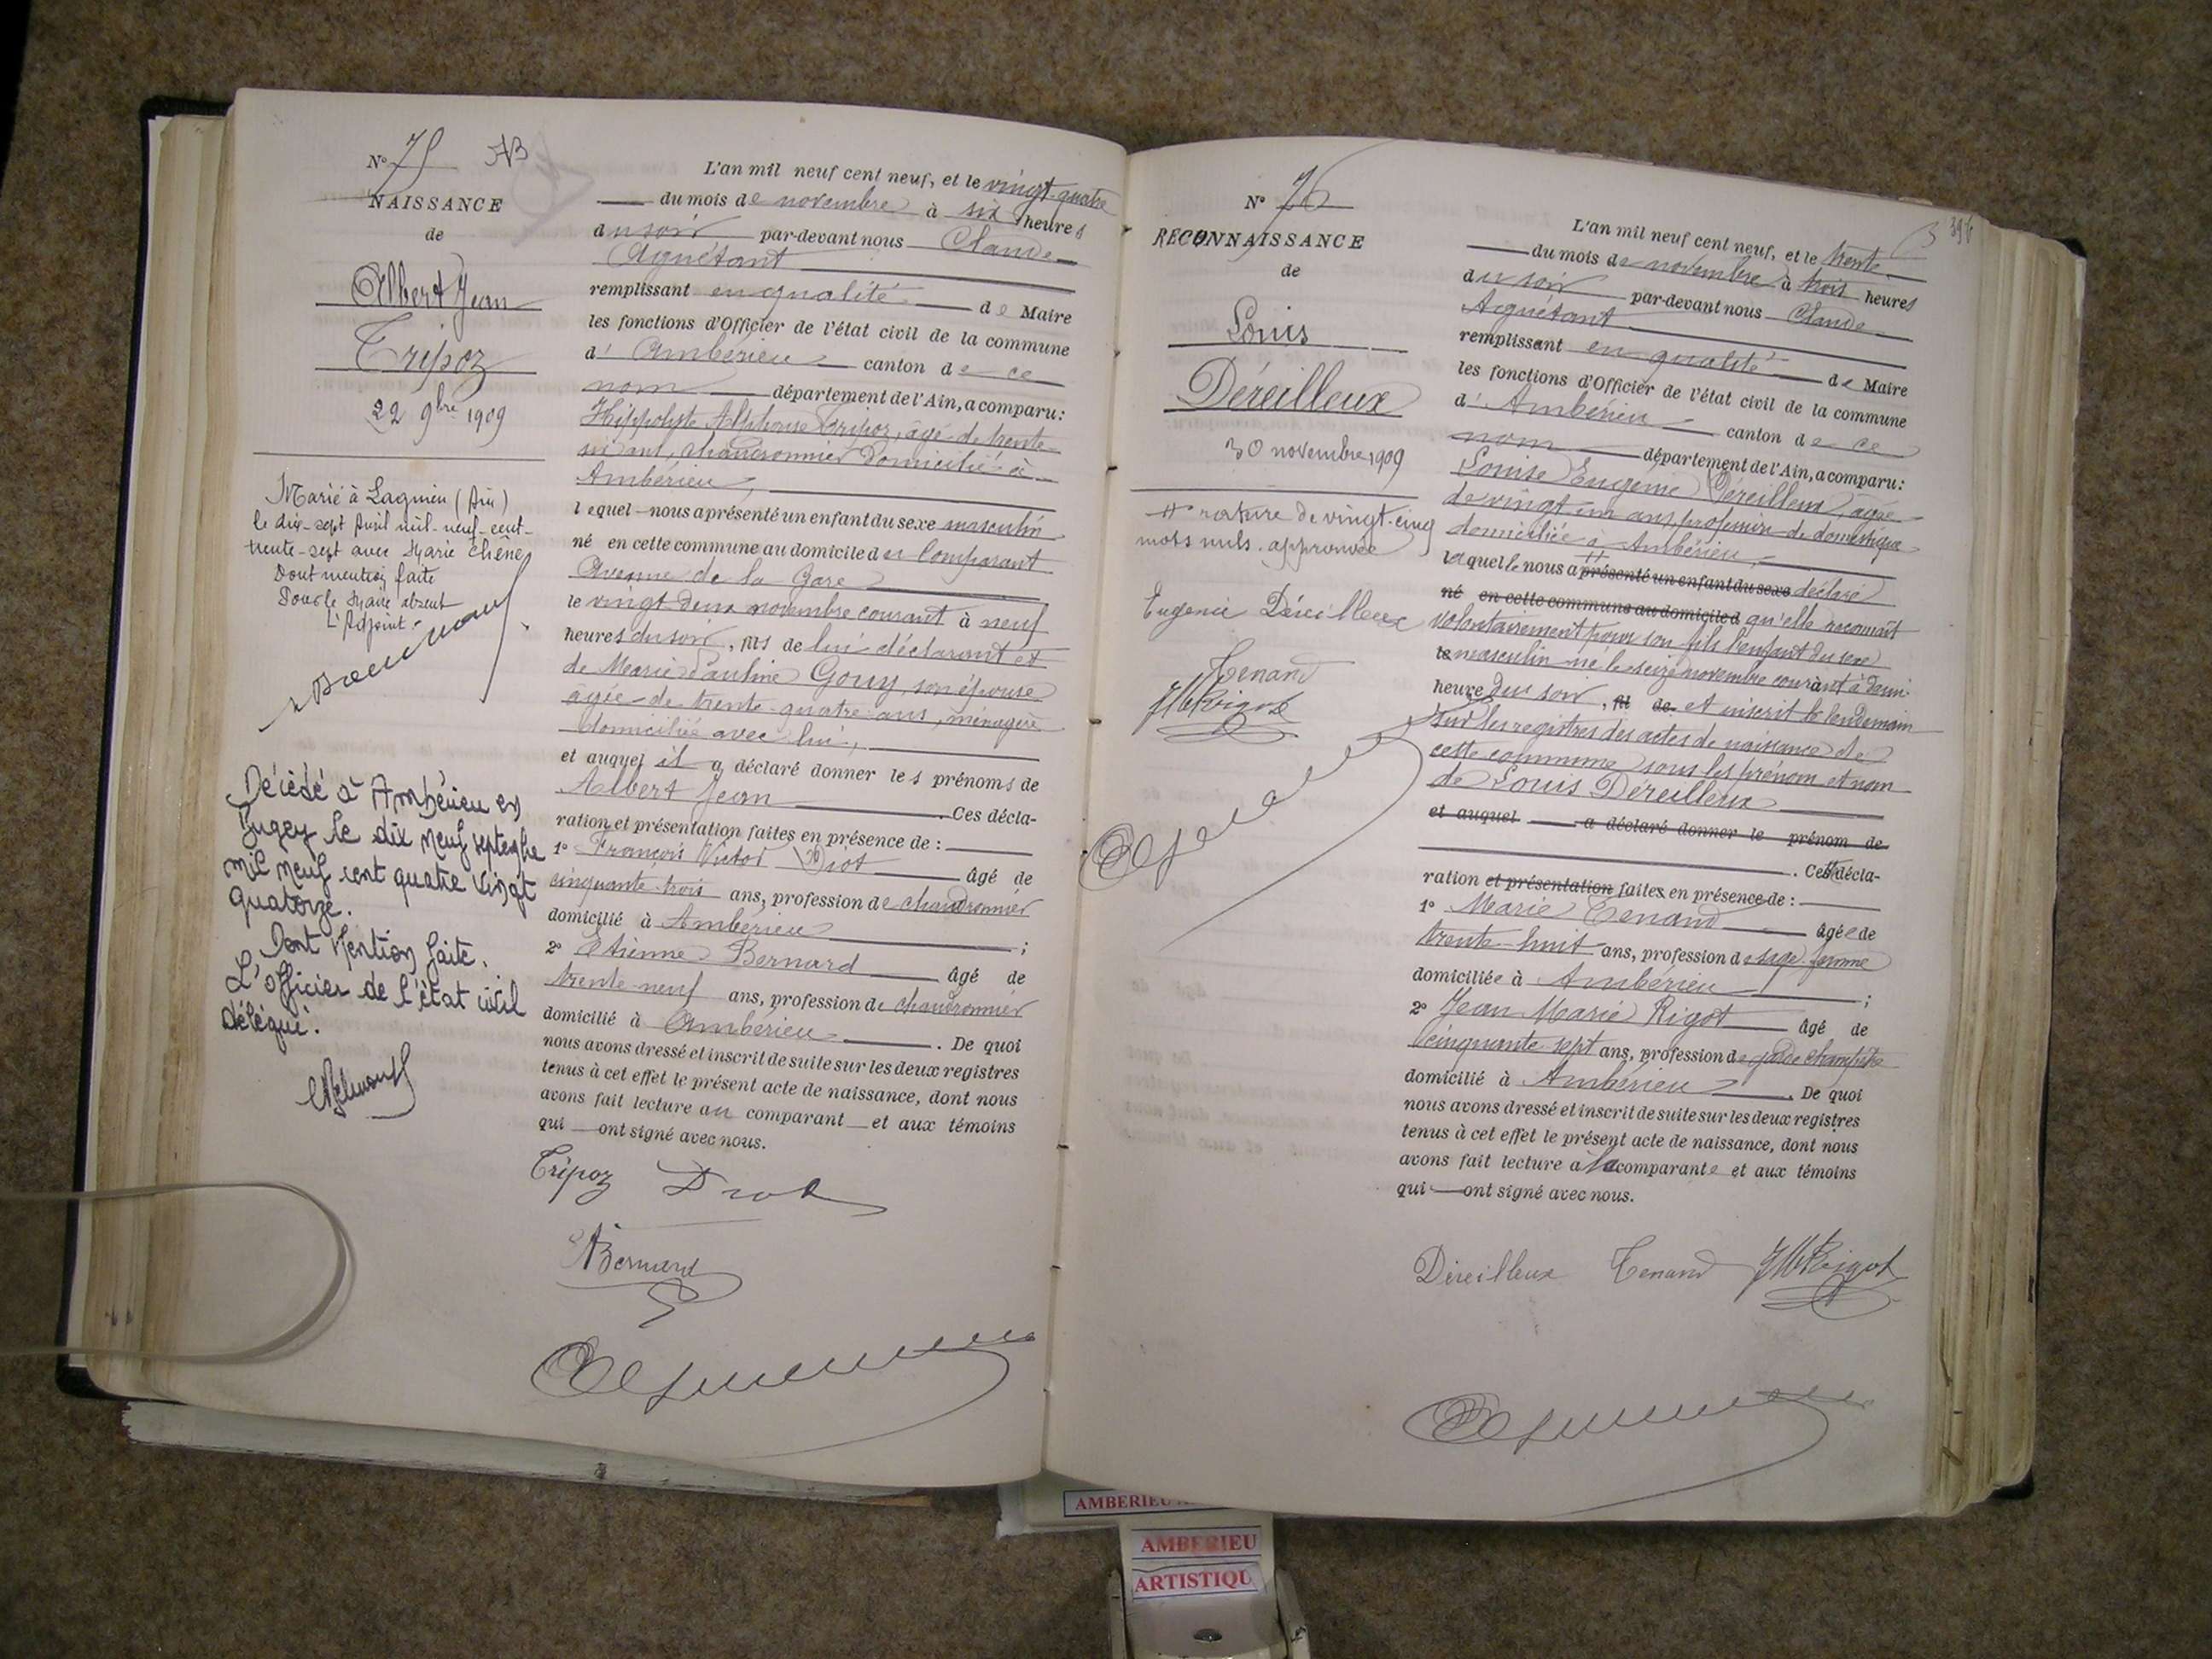 N° 75 AB
NAISSANCE
de
Albert Jean
Tripoz
22 9bre 1909
Marié à Lagnieu (Ain)
le dix-sept Avril mil-neuf-cent-
trente-sept avec Marie Chêne
Dont mention faite
Pour le Maire absent
L'Adjoint.
Décédé à Ambérieu en
Bugey le dix neuf septembre
mil neuf cent quatre vingt
quatorze.
Dont Mention faite.
L'officier de l'état civil
délégué.
L'an mil neuf cent neuf, et le vingt-quatre
du mois de novembre à six heures
du soir par-devant nous Claude
Aguétant
remplissant en qualité de Maire
les fonctions d'Officier de l'état civil de la commune
d' Ambérieu canton de ce
nom département de l'Ain, a comparu :
Hippolyte Alphonse Tripoz, âgé de trente
six ans, chaudronnier domicilié à
Ambérieu,
lequel nous a présenté un enfant du sexe masculin
né en cette commune au domicile du comparant
Avenue de la Gare
le vingt deux novembre courant à neuf
heures du soir, fils de lui déclarant et
de Marie Pauline Gouy, son épouse
agée de trente-quatre ans, ménagère
domiciliée avec lui,
et auquel il a déclaré donner les prénoms de
Albert Jean . Ces décla-
ration et présentation faites en présence de :
1° François Victor Drot âgé de
cinquante-trois ans, profession de chaudronnier
domicilié à Ambérieu ;
2° Etienne Bernard âgé de
trente-neuf ans, profession de chaudronnier
domicilié à Ambérieu . De quoi
nous avons dressé et inscrit de suite sur les deux registres
tenus à cet effet le présent acte de naissance, dont nous
avons fait lecture au comparant et aux témoins
qui ont signé avec nous.
Tripoz Drot
Bernard
N° 76
RECONNAISSANCE
de
Louis
Déreilleux
30 novembre 1909
# rature de vingt-cinq
mots nuls. approuvée
Eugenie Déreilleux
Tenand
JM Rigot
396
L'an mil neuf cent neuf, et le trente
du mois de novembre à trois heures
du soir par-devant nous Claude
Aguétant
remplissant en qualité de Maire
les fonctions d'Officier de l'état civil de la commune
d' Ambérieu canton de ce
nom département de l'Ain, a comparu :
Louise Eugénie Déreilleux, agée
de vingt un ans, profession de domestique
domiciliée à Ambérieu,
laquelle nous a # présenté un enfant du sexe déclaré
né en cette commune au domicile d qu'elle reconnaît
volontairement pour son fils l'enfant du sexe
le masculin né le seize novembre courant à demi
heure du soir, fil de et inscrit le lendemain
sur les registres des actes de naissance de
cette commune sous les prénom et nom
de Louis Déreilleux
et auquel a déclaré donner le prénom de
. Cette décla-
ration et présentation faites en présence de :
1° Marie Tenand âgée de
trente-huit ans, profession de sage-femme
domiciliée à Ambérieu ;
2° Jean Marie Rigot âgé de
cinquante-sept ans, profession de garde champêtre
domicilié à Ambérieu . De quoi
nous avons dressé et inscrit de suite sur les deux registres
tenus à cet effet le présent acte de naissance, dont nous
avons fait lecture à la comparante et aux témoins
qui ont signé avec nous.
Déreilleux Tenand JM Rigot
AMBERIEU
AMBERIEU
ARTISTIQU